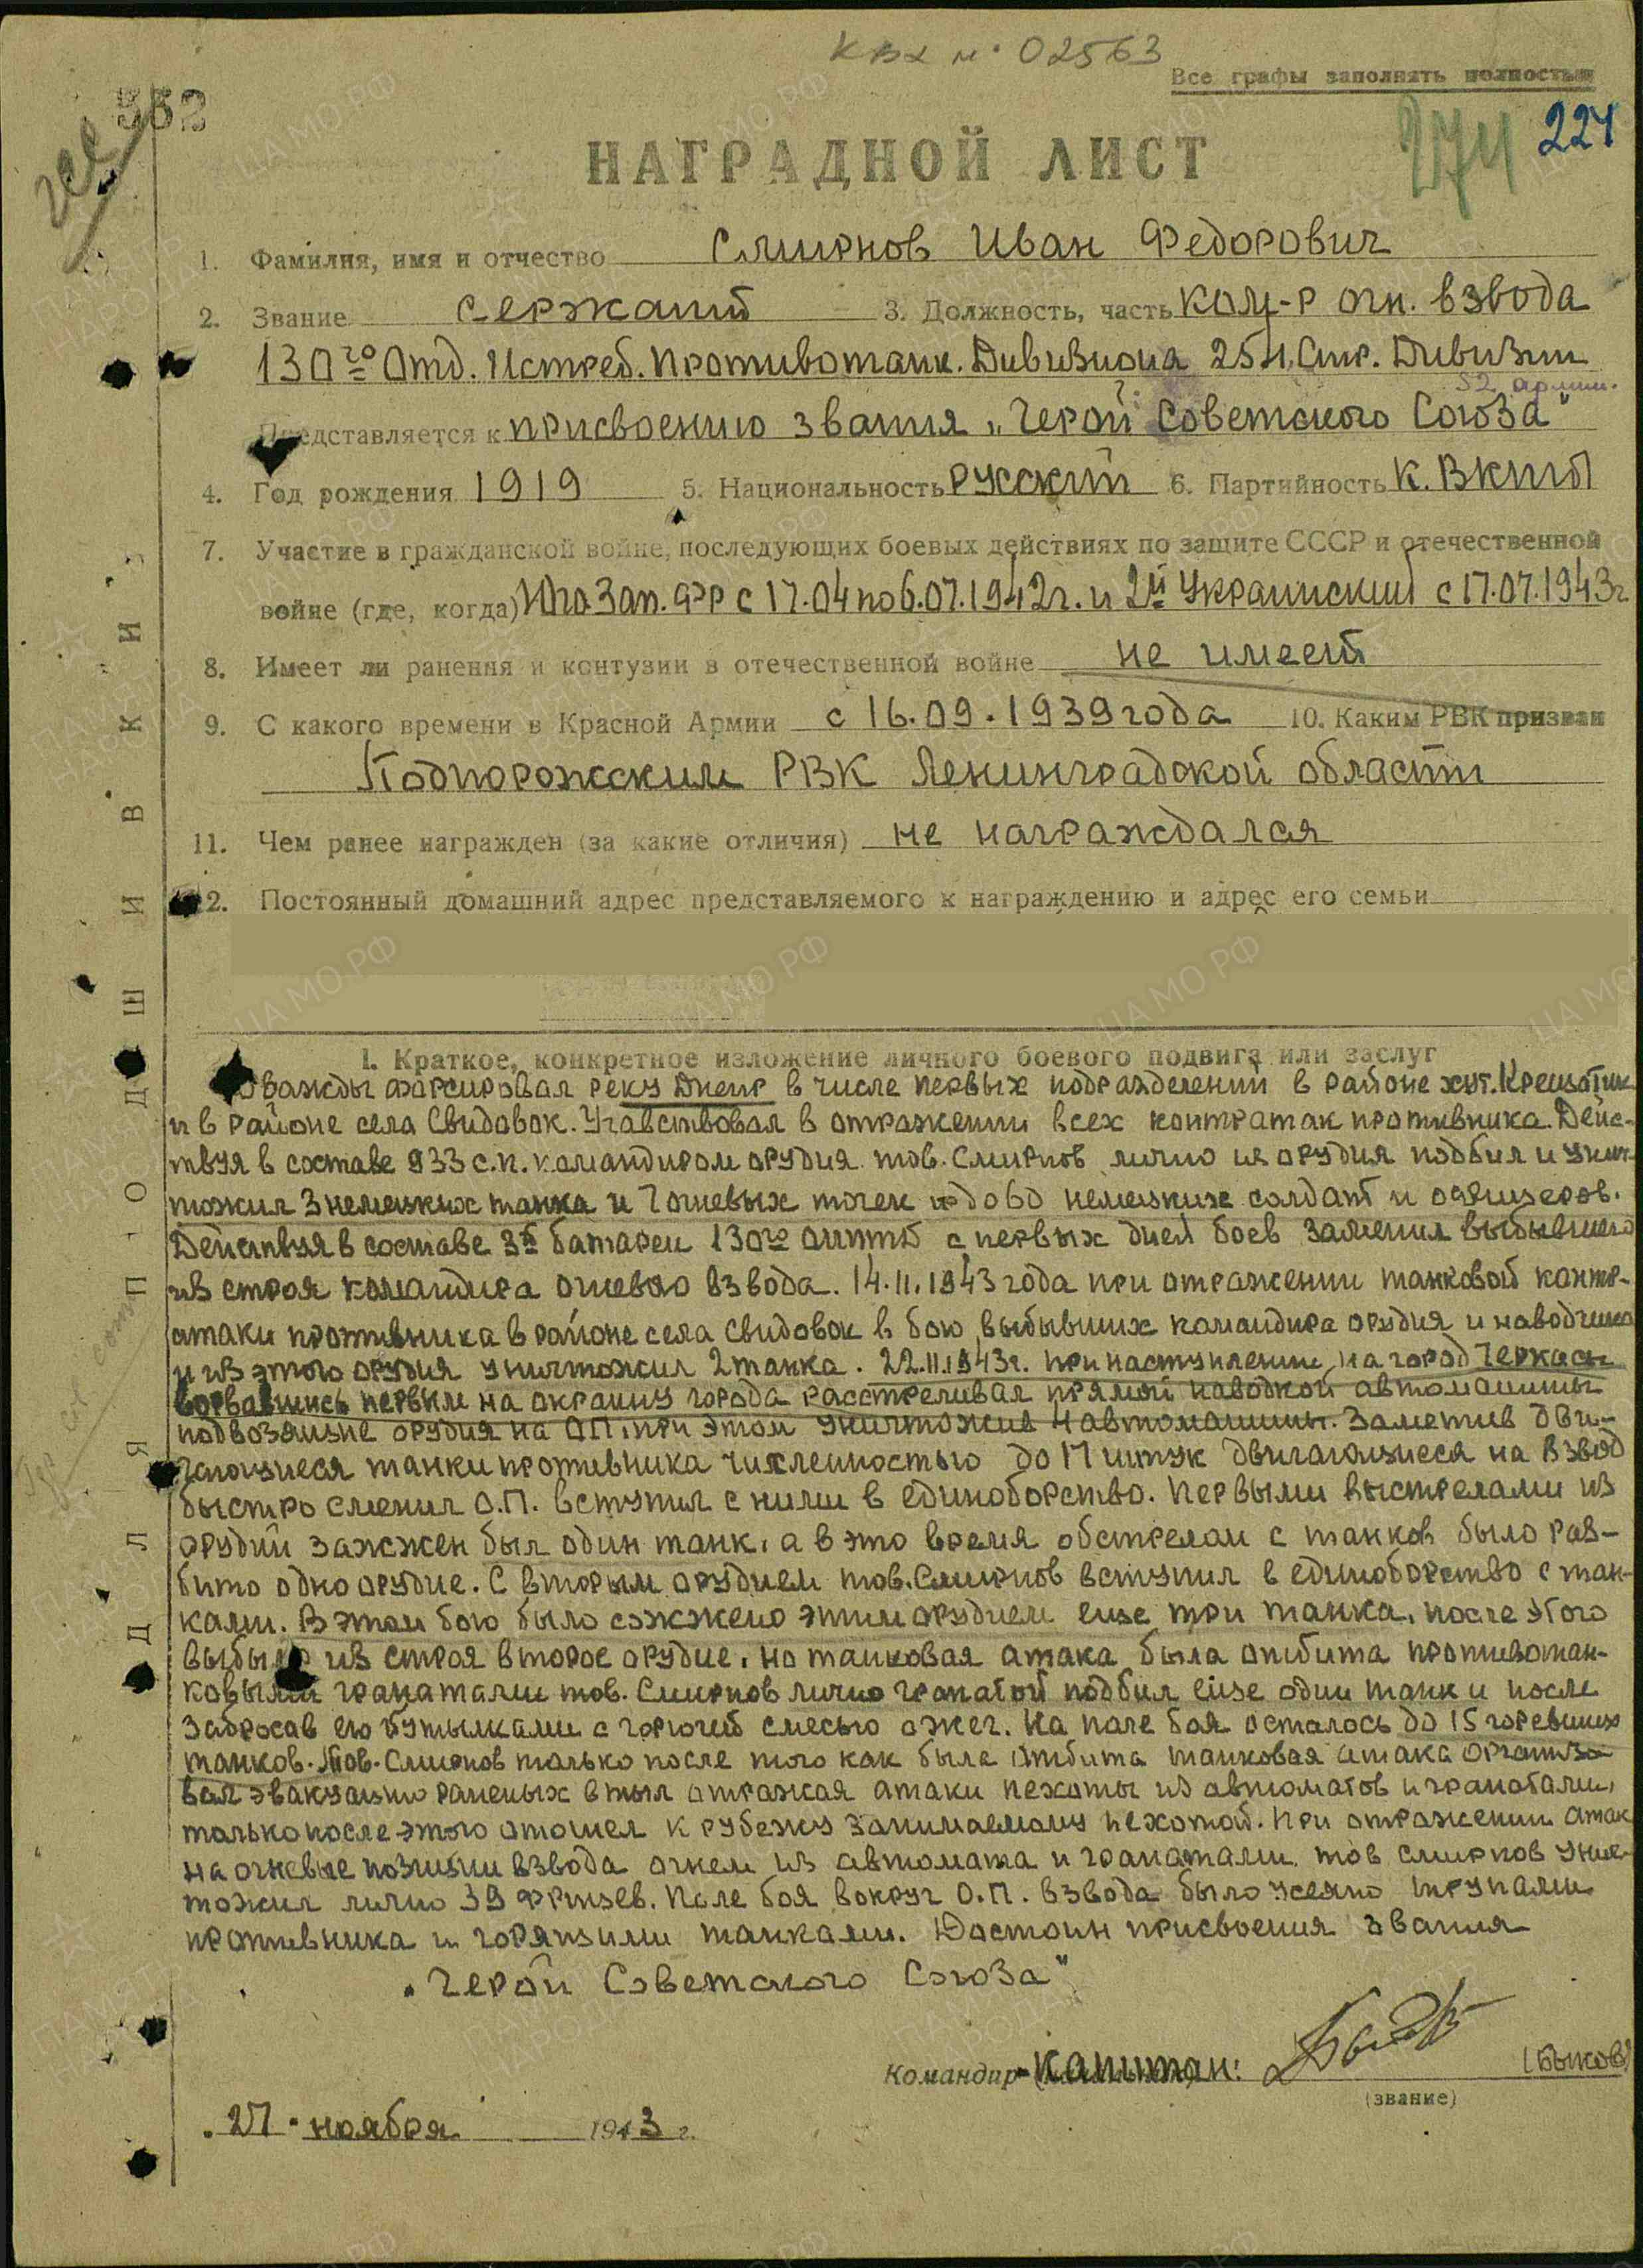 КВх № 02563
Все графы заполнять полностью
552
274
224
НАГРАДНОЙ ЛИСТ
1. Фамилия, имя и отчество Смирнов Иван Федорович
2. Звание сержант 3. Должность, часть ком-р огн. взвода
130го Отд. Истреб. Противотанк. Дивизиона 254 Стр. Дивизии
52 армии.
Представляется к присвоению звания „Герой Советского Союза"
4. Год рождения 1919 5. Национальность Русский 6. Партийность К. ВКПб
7. Участие в гражданской войне, последующих боевых действиях по защите СССР и отечественной
войне (где, когда) Юго Зап. ФР с 17.04 по 6.07.1942г. и 2й Украинский с 17.07.1943г
8. Имеет ли ранения и контузии в отечественной войне не имеет
9. С какого времени в Красной Армии с 16.09.1939 года 10. Каким РВК призван
Подпорожским РВК Ленинградской области
11. Чем ранее награжден (за какие отличия) не награждался
12. Постоянный домашний адрес представляемого к награждению и адрес его семьи
I. Краткое, конкретное изложение личного боевого подвига или заслуг
Дважды форсировал реку Днепр в числе первых подразделений в районе хут. Крещатик
и в районе села Свидовок. Учавствовал в отражении всех контратак противника. Дейс-
твуя в составе 933 с.п. командиром орудия тов. Смирнов лично из орудия подбил и унич-
тожил 3 немецких танка и 7 огневых точек и до 60 немецких солдат и офицеров.
Действуя в составе 3й батареи 130го оиптд с первых дней боев заменил выбывшего
из строя командира огневого взвода. 14.11.1943 года при отражении танковой контр-
атаки противника в районе села Свидовок в бою выбывших командира орудия и наводчика
и из этого орудия уничтожил 2 танка. 22.11.1943г. при наступлении на город Черкасы
ворвавшись первым на окраину города расстреливал прямой наводкой автомашины
подвозящие орудия на ОП, при этом уничтожив 4 автомашины. Заметив дви-
гающиеся танки противника численностью до 17 штук двигающиеся на взвод
быстро сменил О.П. вступил с ними в единоборство. Первыми выстрелами из
орудий зажжен был один танк, а в это время обстрелом с танков было раз-
бито одно орудие. С вторым орудием тов. Смирнов вступил в единоборство с тан-
ками. В этом бою было сожжено этим орудием еще три танка, после этого
выбыло из строя второе орудие, но танковая атака была отбита противотан-
ковыми гранатами тов. Смирнов лично гранатой подбил еще один танк и после
забросав его бутылками с горючей смесью сжег. На поле боя осталось до 15 горевших
танков. Тов. Смирнов только после того как была отбита танковая атака организо-
вал эвакуацию раненых в тыл отражая атаки пехоты из автоматов и гранатами,
только после этого отошел к рубежу занимаемому пехотой. При отражении атак
на огневые позиции взвода огнем из автомата и гранатами тов Смирнов унич-
тожил лично 39 фрицев. Поле боя вокруг О.П. взвода было усеяно трупами
противника и горящими танками. Достоин присвоения звания
„Герой Советского Союза"
Командир Капитан: (Быков)
(звание)
„27" ноября 1943 г.
ДЛЯ ПОДШИВКИ